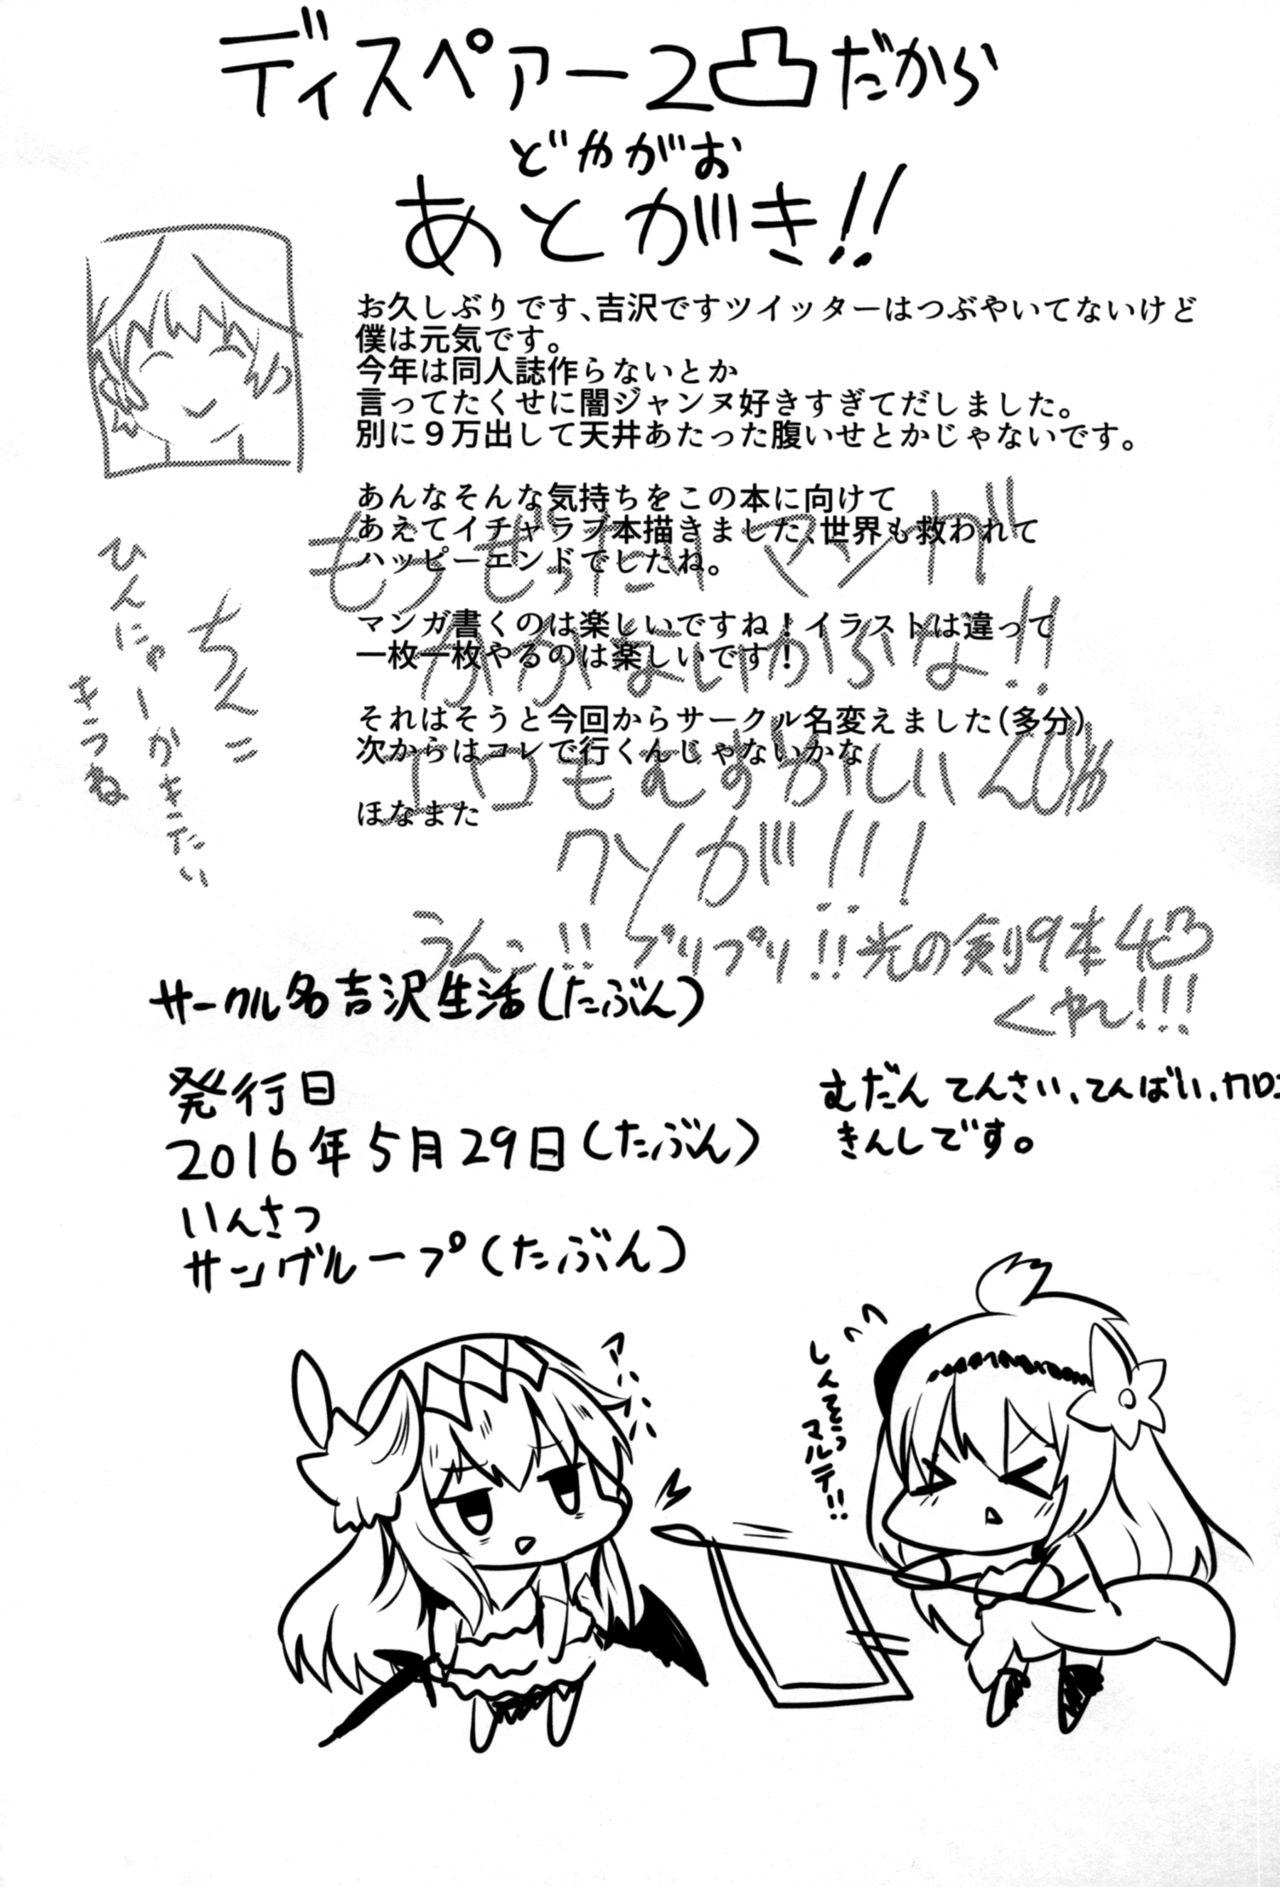 ディスペアー2凸だから
どやがお
あとがき!!
お久しぶりです、吉沢ですツイッターはつぶやいてないけど
僕は元気です。
今年は同人誌作らないとか
言ってたくせに闇ジャンヌ好きすぎてだしました。
別に９万出して天井あたった腹いせとかじゃないです。
あんなそんな気持ちをこの本に向けて
あえてイチャラブ本描きました、世界も救われて
ハッピーエンドでしたね。
マンガ書くのは楽しいですね！イラストは違って
一枚一枚やるのは楽しいです！
それはそうと今回からサークル名変えました(多分)
次からはコレで行くんじゃないかな
ほなまた
もうぜったいマンガ
かかないからな!!
エロもむずかしいんじゃ
クソが!!!
うんこ!!プリプリ!!光の剣9本4凸
くれ!!!
ちんこ
ひんにゅーかきたい
きつね
サークル名吉沢生活(たぶん)
発行日
2016年5月29日(たぶん)
いんさつ
サングループ(たぶん)
むだんてんさい、てんばい、
きんしです。
アハハハ
しんそうマルテ!!